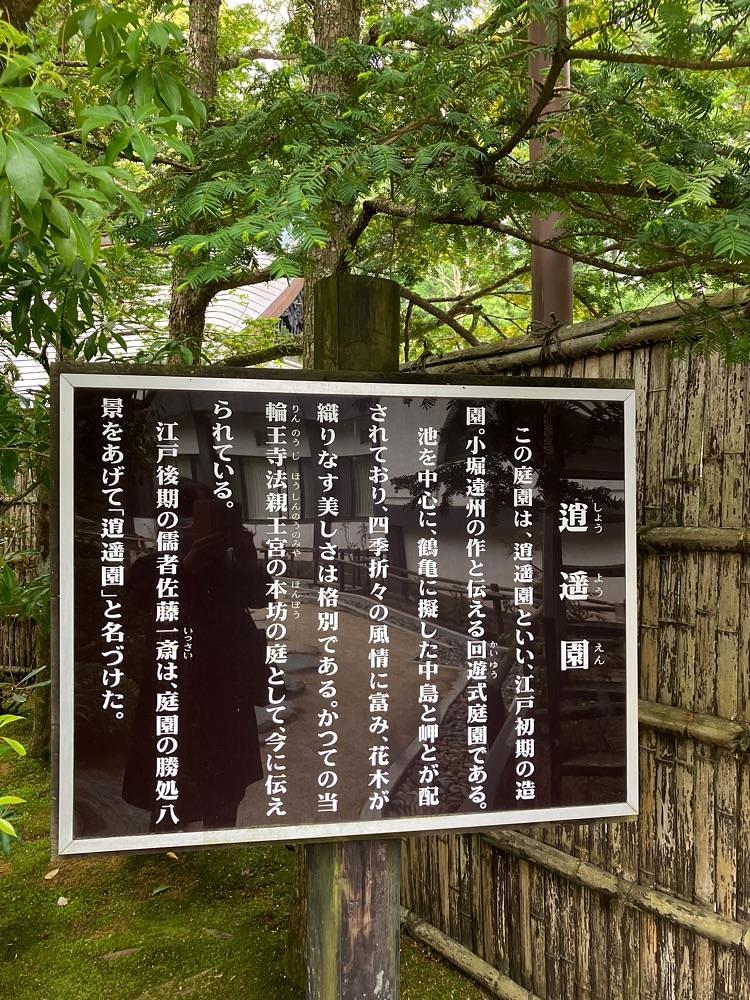 逍遥園
しょうようえん
この庭園は、逍遥園といい、江戸初期の造
園。小堀遠州の作と伝える回遊式庭園である。
かいゆう
池を中心に、鶴亀に擬した中島と岬とが配
されており、四季折々の風情に富み、花木が
織りなす美しさは格別である。かつての当
輪王寺法親王宮の本坊の庭として、今に伝え
りんのうじ ほうしんのうのみや ほんぼう
られている。
江戸後期の儒者佐藤一斎は、庭園の勝処八
いっさい
景をあげて「逍遥園」と名づけた。